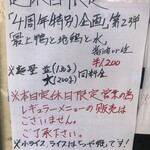 「4周年特別企画」第2弾
「最上鴨と地鶏と水」
醤油の陰
¥1,200
※麺量 並(130g) 同料金
大(200g)
※本日定休日限定営業の為
レギュラーメニューの販売は
ございません。
ご了承下さいませ。
※小ライス、ライスはございます。